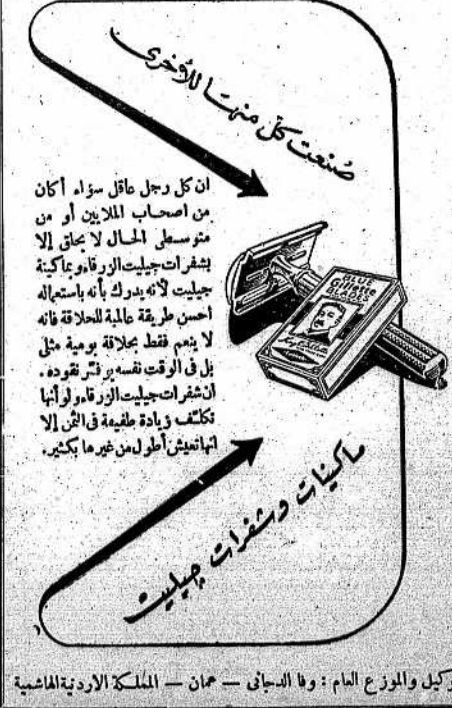 صُنعت كلٌ منهَا للأُخرى
ان كل رجل عاقل سواء أكان
من اصحاب الملايين أو من
متوسطى الحال لا يحلق إلا
بشفرات جيليت الزرقاء وبماكينة
جيليت لأنه يدرك بأنه باستعماله
احسن طريقة عالمية للحلاقة فانه
لا ينعم فقط بحلاقة يومية مثلى
بل فى الوقت نفسه يوفر نقوده.
ان شفرات جيليت الزرقاء ولو أنها
تكلف زيادة طفيفة فى الثمن إلا
انها تعيش أطول من غيرها بكثير.
BLUE
Gillette
BLADES
ماكينات وشفرات چيليت
وكيل والموزع العام : وفا الدجانى — عمان — المملكة الاردنية الهاشمية